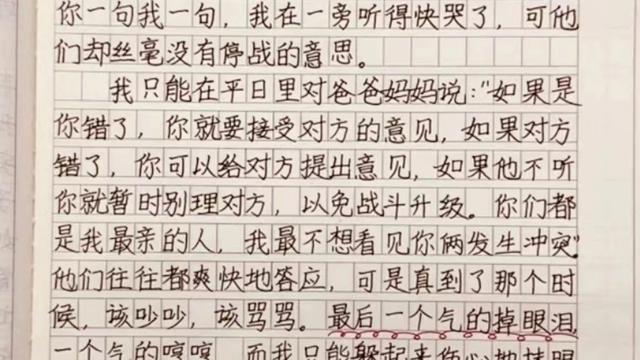 你一句我一句，我在一旁听得快哭了，可他
们却丝毫没有停战的意思。
我只能在平日里对爸爸妈妈说："如果是
你错了，你就要接受对方的意见，如果对方
错了，你可以给对方提出意见，如果他不听
你就暂时别理对方，以免战斗升级。你们都
是我最亲的人，我最不想看见你俩发生冲突"
他们往往都爽快地答应，可是真到了那个时
候，该吵吵，该骂骂。最后一个气的掉眼泪，
一个气的哼哼，而我只能躲起来